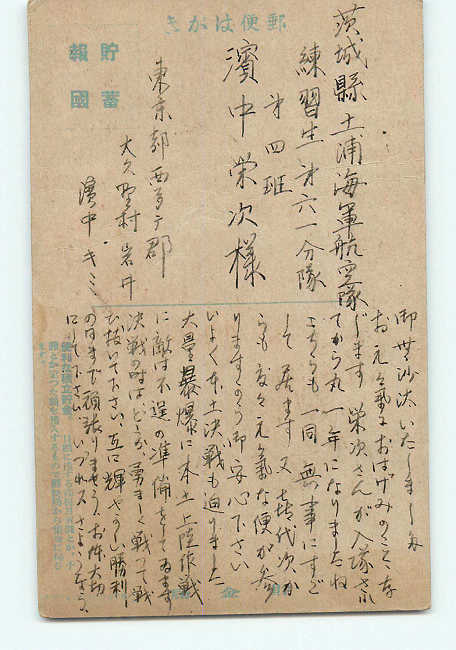 郵便はがき
貯蓄
報國
茨城縣土浦海軍航空隊
練習生第六一分隊
第四班
濱中栄次様
東京都西多マ郡
大久野村岩井
濱中キミ
御無沙汰いたしました
お元気におはげみのことゝ存
じます 栄次さんが入隊され
てから丸一年になりましたね
こちらも一同無事にすご
して居ます 又喜代次か
らも度々元気な便が参
りますから御安心下さい
いよいよ本土決戦も迫りました
大量爆爆に本土上陸作戦
に敵は不逞の準備をしてゐます
決戦の時はどうか勇ましく戦って戦
ひ抜いて下さい、互に輝やかしい勝利
の日まで頑張りませう、お体大切
にして下さい いづれ又 さようなら